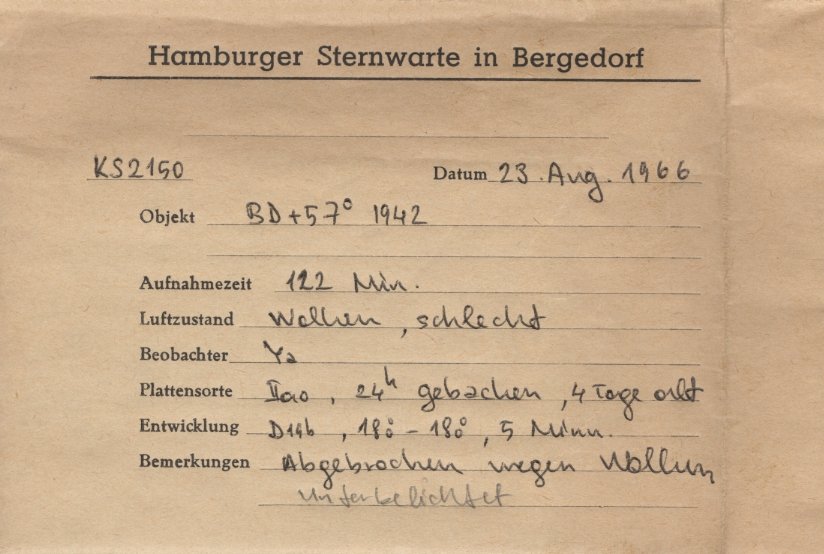 Hamburger Sternwarte in Bergedorf
KS2150 Datum 23. Aug. 1966
Objekt BD+57° 1942
Aufnahmezeit 122 Min.
Luftzustand Wolken, schlecht
Beobachter
Plattensorte IIao, 24h gebacken, 4 Tage alt
Entwicklung 18°-18°, 5 Minn.
Bemerkungen Abgebrochen wegen Wolken
unterbelichtet